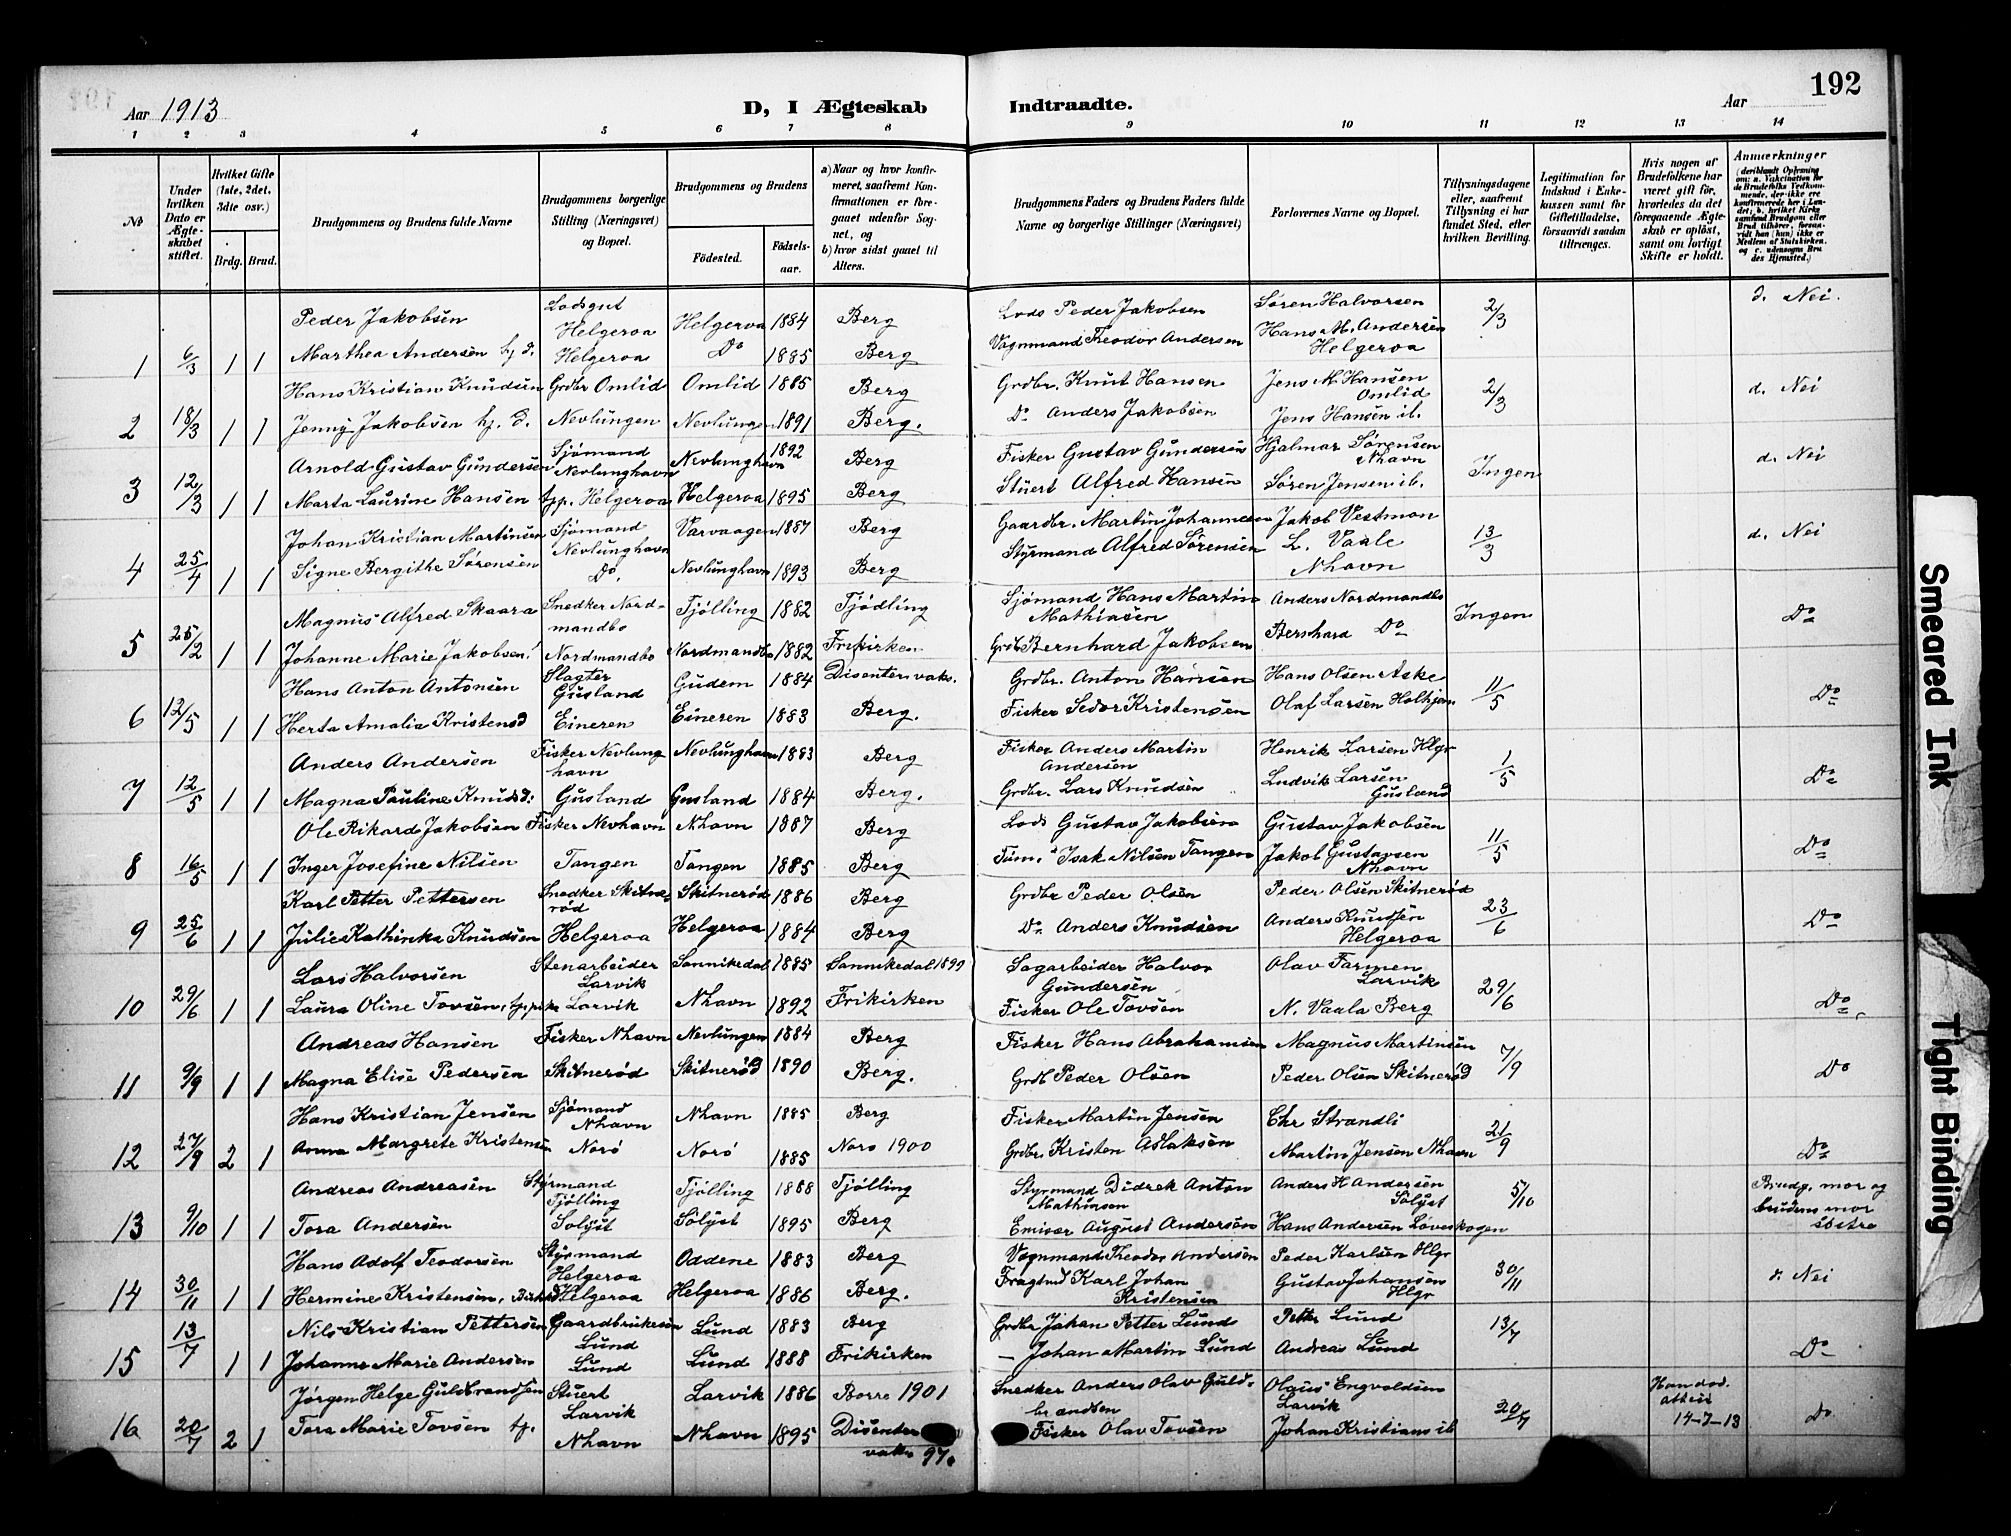 192
Aar 1913 D, I Ægteskab Indtraadte. Aar
1 2 3 4 5 6 7 8 9 10 11 12 13 14
№
Under hvilken Dato er Ægteskabet stiftet.
Hvilket Gifte (1ste, 2det, 3die osv.)
Brdg. Brud.
Brudgommens og Brudens fulde Navne
Brudgommens borgerlige Stilling (Næringsvei) og Bopæl.
Brudgommens og Brudens
Födested. Födselsaar.
a) Naar og hvor konfirmeret, saafremt Konfirmationen er foregaaet udenfor Sognet, og
b) hvor sidst gaaet til Alters.
Brudgommens Faders og Brudens Faders fulde Navne og borgerlige Stillinger (Næringsvei)
Forlovernes Navne og Bopæl.
Tillysningsdagene eller, saafremt Tillysning ei har fundet Sted, efter hvilken Bevilling.
Legitimation for Indskud i Enkekassen samt for Giftetilladelse, forsaavidt saadan tiltrænges.
Hvis nogen af Brudefolkene har været gift för, hvorledes da det foregaaende Ægteskab er oplöst, samt om lovligt Skifte er holdt.
Anmærkninger
(deriblandt Oplysning om: a. Vakcination for de Brudefolks Vedkommende, der ikke ere konfirmerede her i Landet; b. hvilket Kirkesamfund Brudgom eller Brud tilhörer, forsaavidt han (hun) ikke er Medlem af Statskirken, og c. udensogns Brudes Hjemsted.)
Peder Jakobsen Lodsgut Helgeroa Helgeroa 1884 Berg Lods Peder Jakobsen Søren Halvorsen 2/3 d. Nei.
1 6/3 1 1 Marthea Andersen hj. d. Helgeroa Do 1885 Berg Vognmand Theodor Andersen Hans M. Andersen Helgeroa
Hans Kristian Knudsen Grdbr Omlid Omlid 1885 Berg Grdbr. Knut Hansen Jens M Hansen Omlid 2/3 d. Nei
2 18/3 1 1 Jenny Jakobsen hj. d. Nevlungen Nevlungen 1891 Berg. Do Anders Jakobsen Jens Hansen ib.
Arnold Gustav Gundersen Sjømand Nevlunghavn Nevlunghavn 1892 Berg Fisker Gustav Gundersen Hjalmar Sørensen Nhavn Ingen d. Nei
3 12/3 1 1 Marta Laurine Hansen Helgeroa Helgeroa 1895 Berg Stuert Alfred Hansen Søren Jensen ib.
Johan Kristian Martinsen Sjømand Nevlunghavn Varvaagen 1887 Berg Gaardbr. Martin Johannesen Jakob Vestmon 13/3 d. Nei
4 25/4 1 1 Signe Bergithe Sørensen Do. Nevlunghavn 1893 Berg Styrmand Alfred Sørensen L. Vaale Nhavn
Magnus Alfred Skaara Snedker Nordmandbo Tjølling 1882 Tjødling Sjømand Hans Martin Mathiasen Anders Nordmandbo Ingen Do
5 25/2 1 1 Johanne Marie Jakobsen Nordmandbo Nordmandbo 1882 Frikirken Bernhard Jakobsen Bernhard Do
Hans Anton Antonsen Slagter Gusland Gudem 1884 Disenter vak. Grdbr. Anton Hansen Hans Olsen Aske 11/5 Do
6 12/5 1 1 Herta Amalia Kristensd Eineren Eineren 1883 Berg. Fisker Sedor Kristensen Olaf Larsen Holtjem
Anders Andersen Fisker Nevlunghavn Nevlunghavn 1883 Berg Fisker Anders Martin Andersen Henrik Larsen Hlgr 1/5 Do
7 12/5 1 1 Magna Pauline Knudsd: Gusland Gusland 1884 Berg. Grdbr. Lars Knudsen Ludvik Larsen Gusland
Ole Rikard Jakobsen Fisker Nevhavn Nhavn 1887 Berg Lods Gustav Jakobsen Gustav Jakobsen 11/5 Do
8 16/5 1 1 Inger Josefine Nilsen Tangen Tangen 1885 Berg Tøm. Isak Nilsen Tangen Jakob Gustavsen Nhavn
Karl Petter Pettersen Snedker Skitnerød Skitnerød 1886 Berg Grdbr Peder Olsen Peder Olsen Skitnerød 23/6 Do
9 25/6 1 1 Julie Kathinka Knudsen Helgeroa Helgeroa 1884 Berg Do Anders Knudsen Anders Knudsen Helgeroa
Lars Halvorsen Stenarbeider Larvik Sannikedal 1885 Sannikedal 1899 Sagarbeider Halvor Gundersen Olav Farmen Larvik 29/6 Do
10 29/6 1 1 Laura Oline Tovsen, tj.pike Larvik Nhavn 1892 Frikirken Fisker Ole Tovsen N. Vaala Berg
Andreas Hansen Fisker Nhavn Nevlungen 1884 Berg Fisker Hans Abrahamsen Magnus Martinsen 7/9 Do
11 9/9 1 1 Magna Elise Pedersen Skitnerød Skitnerød 1890 Berg. Grdb Peder Olsen Peder Olsen Skitnerød
Hans Kristian Jensen Sjømand Nhavn Nhavn 1885 Berg Fisker Martin Jensen Chr Strandli 21/9 Do
12 27/9 2 1 Anna Margrete Kristensen Norø Norø 1885 Norø 1900 Grdbr. Kristen Aslaksen Martin Jensen Nhavn
Andreas Andreasen Styrmand Tjølling Tjølling 1888 Tjølling Styrmand Didrek Anton Mathiasen Anders H Andersen Sølyst 5/10 Brudg. mor og brudens mor søstre
13 9/10 1 1 Tora Andersen Solyst Sølyst 1895 Berg Emisær August Andersen Hans Andersen Løveskogen
Hans Adolf Teodorsen Styrmand Helgeroa Oddene 1883 Berg Vognmand Theodor Andersen Peder Karlsen Hlgr 30/11 d. Nei
14 30/11 1 1 Hermine Kristensen, Helgeroa Helgeroa 1886 Berg. Karl Johan Kristensen Gustav Johansen Hlgr
Nils Kristian Pettersen Gaardbrukesøn Lund Lund 1883 Berg Grdbr Johan Petter Lund Petter Lund 13/7
15 13/7 1 1 Johanne Marie Andersen Lund Lund 1888 Frikirken — Johan Martin Lund Andreas Lund Do
Jørgen Helge Guldbrandsen Stuert Larvik Larvik 1886 Borre 1901 Snedker Anders Olav Guldbrandsen Olaus Engvoldsen Larvik 20/7 14-7-13 Do
16 20/7 2 1 Tora Marie Tovsen tj. Nhavn Nhavn 1895 Disenter vak. 97. Fisker Olav Tovsen Johan Kristians ib
Smeared Ink
Tight Binding